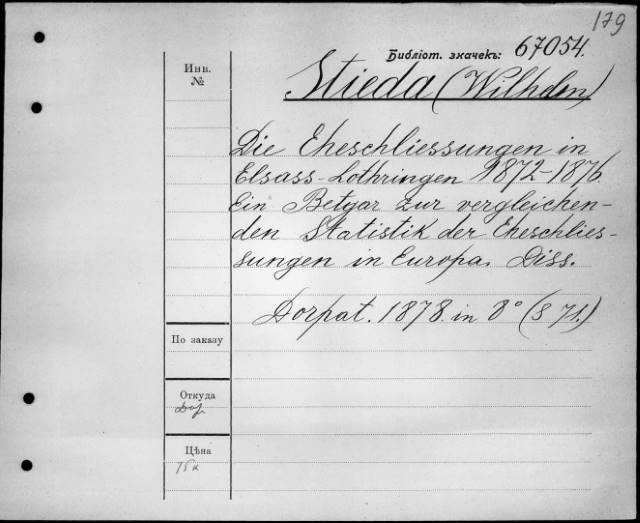 179
Библіот. значекъ: 67054.
Инв.
№
Stieda (Wilhelm)
Die Eheschliessungen in
Elsass-Lothringen 1872-1876
Ein Betgar zur vergleichen-
den Statistik der Eheschlies-
sungen in Europa. Diss.
Dorpat. 1878. in 8° (S 71.)
По заказу
Откуда
Цѣна
75 к